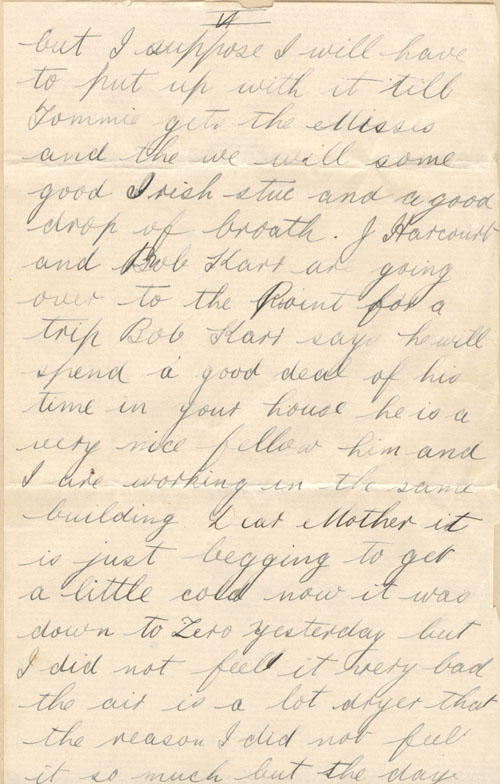 VI
but I suppose I will have
to put up with it till
Tommie gets the Missis
and the we will some
good Irish stue and a good
drop of broath. J Harcourt
and Bob Karr are going
over to the Point for a
trip Bob Karr says he will
spend a good deal of his
time in your house he is a
very nice fellow him and
I are working in the same
building Dear Mother it
is just begging to get
a little cold now it was
down to Zero yesterday but
I did not feell it very bad
the air is a lot dryer that
the reason I did not feell
it so much but the day